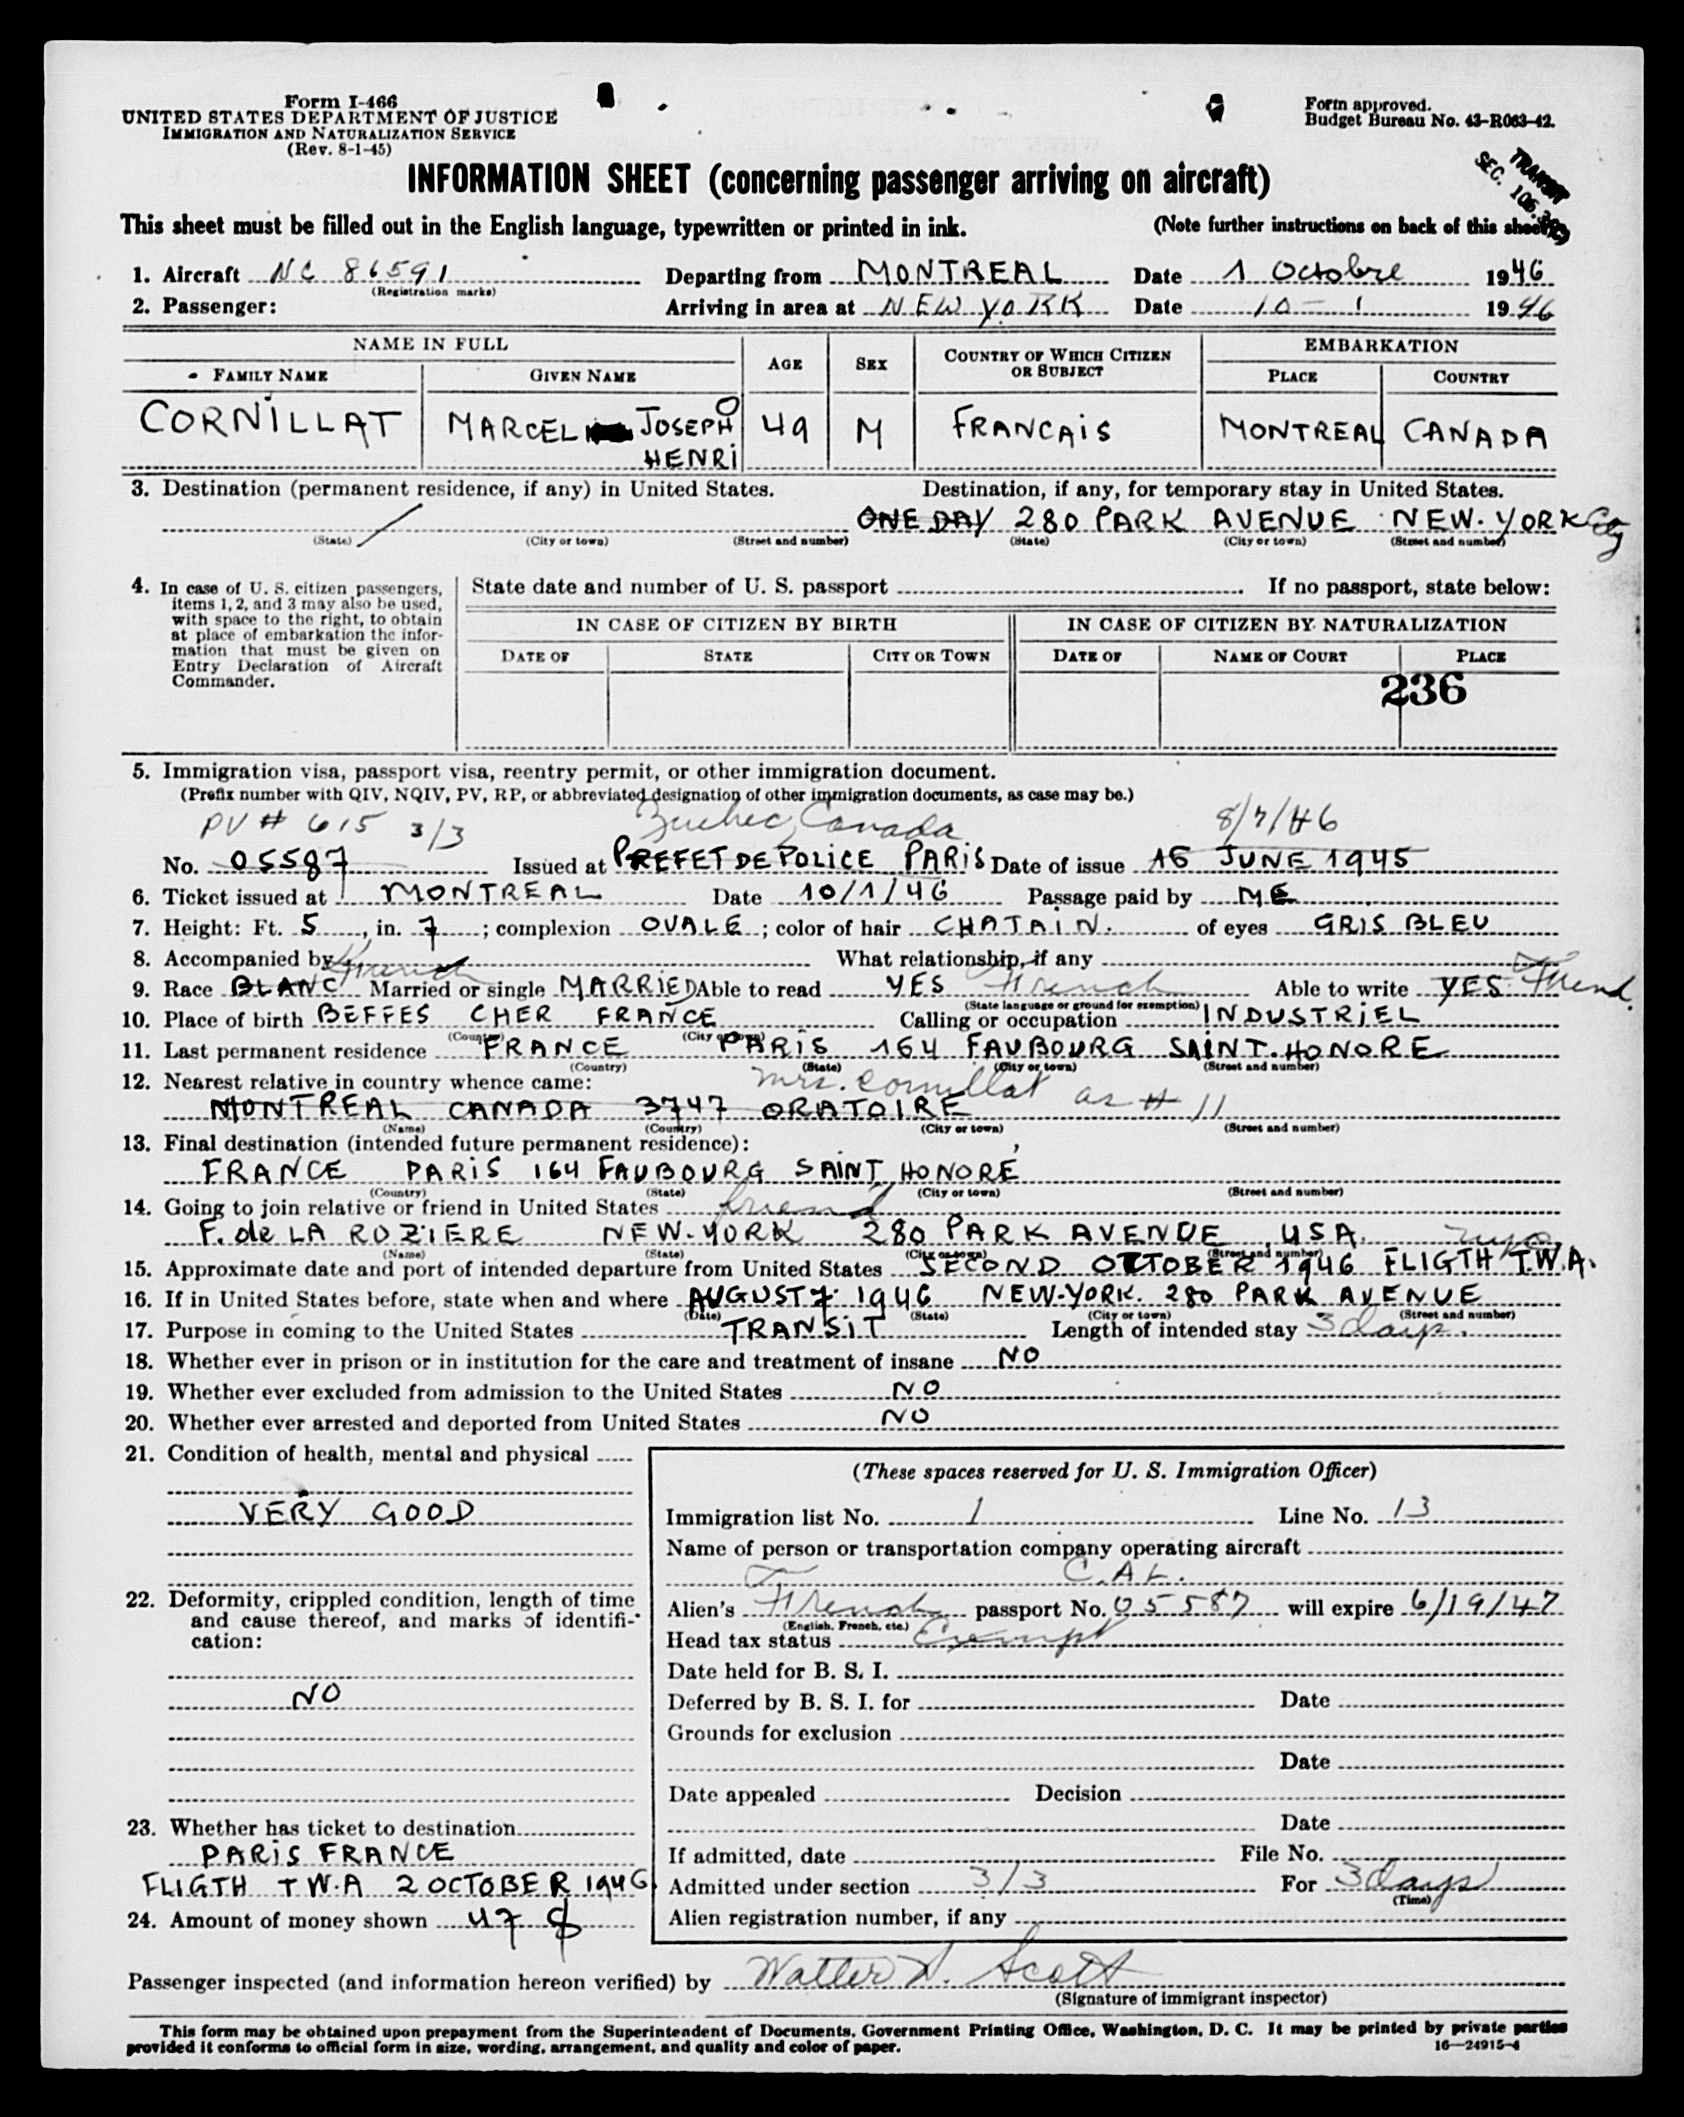 Form I-466
UNITED STATES DEPARTMENT OF JUSTICE
IMMIGRATION AND NATURALIZATION SERVICE
(Rev. 8-1-45)
Form approved.
Budget Bureau No. 43-R063-42.
TRANSIT
SEC. 106.3
INFORMATION SHEET (concerning passenger arriving on aircraft)
This sheet must be filled out in the English language, typewritten or printed in ink. (Note further instructions on back of this sheet)
1. Aircraft NC 86591 Departing from MONTREAL Date 1 Octobre 1946
(Registration marks)
2. Passenger: Arriving in area at NEW YORK Date 10-1 1946
NAME IN FULL AGE SEX COUNTRY OF WHICH CITIZEN OR SUBJECT EMBARKATION
FAMILY NAME GIVEN NAME PLACE COUNTRY
CORNILLAT MARCEL JOSEPH 49 M FRANCAIS MONTREAL CANADA
HENRI
3. Destination (permanent residence, if any) in United States. Destination, if any, for temporary stay in United States.
/ ONE DAY 280 PARK AVENUE NEW-YORK City
(State) (City or town) (Street and number) (State) (City or town) (Street and number)
4. In case of U. S. citizen passengers, items 1, 2, and 3 may also be used, with space to the right, to obtain at place of embarkation the information that must be given on Entry Declaration of Aircraft Commander.
State date and number of U. S. passport If no passport, state below:
IN CASE OF CITIZEN BY BIRTH IN CASE OF CITIZEN BY NATURALIZATION
DATE OF STATE CITY OR TOWN DATE OF NAME OF COURT PLACE
236
5. Immigration visa, passport visa, reentry permit, or other immigration document.
(Prefix number with QIV, NQIV, PV, RP, or abbreviated designation of other immigration documents, as case may be.)
PV # 615 3/3 Quebec, Canada 8/7/46
No. 05587 Issued at PREFET DE POLICE PARIS Date of issue 16 JUNE 1945
6. Ticket issued at MONTREAL Date 10/1/46 Passage paid by ME
7. Height: Ft. 5, in. 7; complexion OVALE; color of hair CHATAIN. of eyes GRIS BLEU
8. Accompanied by What relationship, if any
French
9. Race BLANC Married or single MARRIED Able to read YES French Able to write YES French
(State language or ground for exemption)
10. Place of birth BEFFES CHER FRANCE Calling or occupation INDUSTRIEL
(Country) (City or town)
11. Last permanent residence FRANCE PARIS 164 FAUBOURG SAINT-HONORE
(Country) (State) (City or town) (Street and number)
12. Nearest relative in country whence came: Mrs. Cornillat as # 11
MONTREAL CANADA 3747 ORATOIRE
(Name) (Country) (City or town) (Street and number)
13. Final destination (intended future permanent residence):
FRANCE PARIS 164 FAUBOURG SAINT HONORÉ
(Country) (State) (City or town) (Street and number)
14. Going to join relative or friend in United States friend
F. de LA ROZIERE NEW-YORK 280 PARK AVENUE USA.
(Name) (State) (City or town) (Street and number)
15. Approximate date and port of intended departure from United States SECOND OCTOBER 1946 FLIGTH T.W.A.
16. If in United States before, state when and where AUGUST 7 1946 NEW-YORK. 280 PARK AVENUE
(Date) (State) (City or town) (Street and number)
17. Purpose in coming to the United States TRANSIT Length of intended stay 3 days.
18. Whether ever in prison or in institution for the care and treatment of insane NO
19. Whether ever excluded from admission to the United States NO
20. Whether ever arrested and deported from United States NO
21. Condition of health, mental and physical
VERY GOOD
22. Deformity, crippled condition, length of time and cause thereof, and marks of identification:
NO
23. Whether has ticket to destination
PARIS FRANCE
FLIGTH T W.A 2 OCTOBER 1946.
24. Amount of money shown 47 $
(These spaces reserved for U. S. Immigration Officer)
Immigration list No. 1 Line No. 13
Name of person or transportation company operating aircraft
C.A.L.
Alien's French passport No. 05587 will expire 6/19/47
(English, French, etc.)
Head tax status Exempt
Date held for B. S. I.
Deferred by B. S. I. for Date
Grounds for exclusion
Date
Date appealed Decision
Date
If admitted, date File No.
Admitted under section 3/3 For 3 days
(Time)
Alien registration number, if any
Passenger inspected (and information hereon verified) by Walter W. Scott
(Signature of immigrant inspector)
This form may be obtained upon prepayment from the Superintendent of Documents, Government Printing Office, Washington, D. C. It may be printed by private parties
provided it conforms to official form in size, wording, arrangement, and quality and color of paper.
16—24915-4